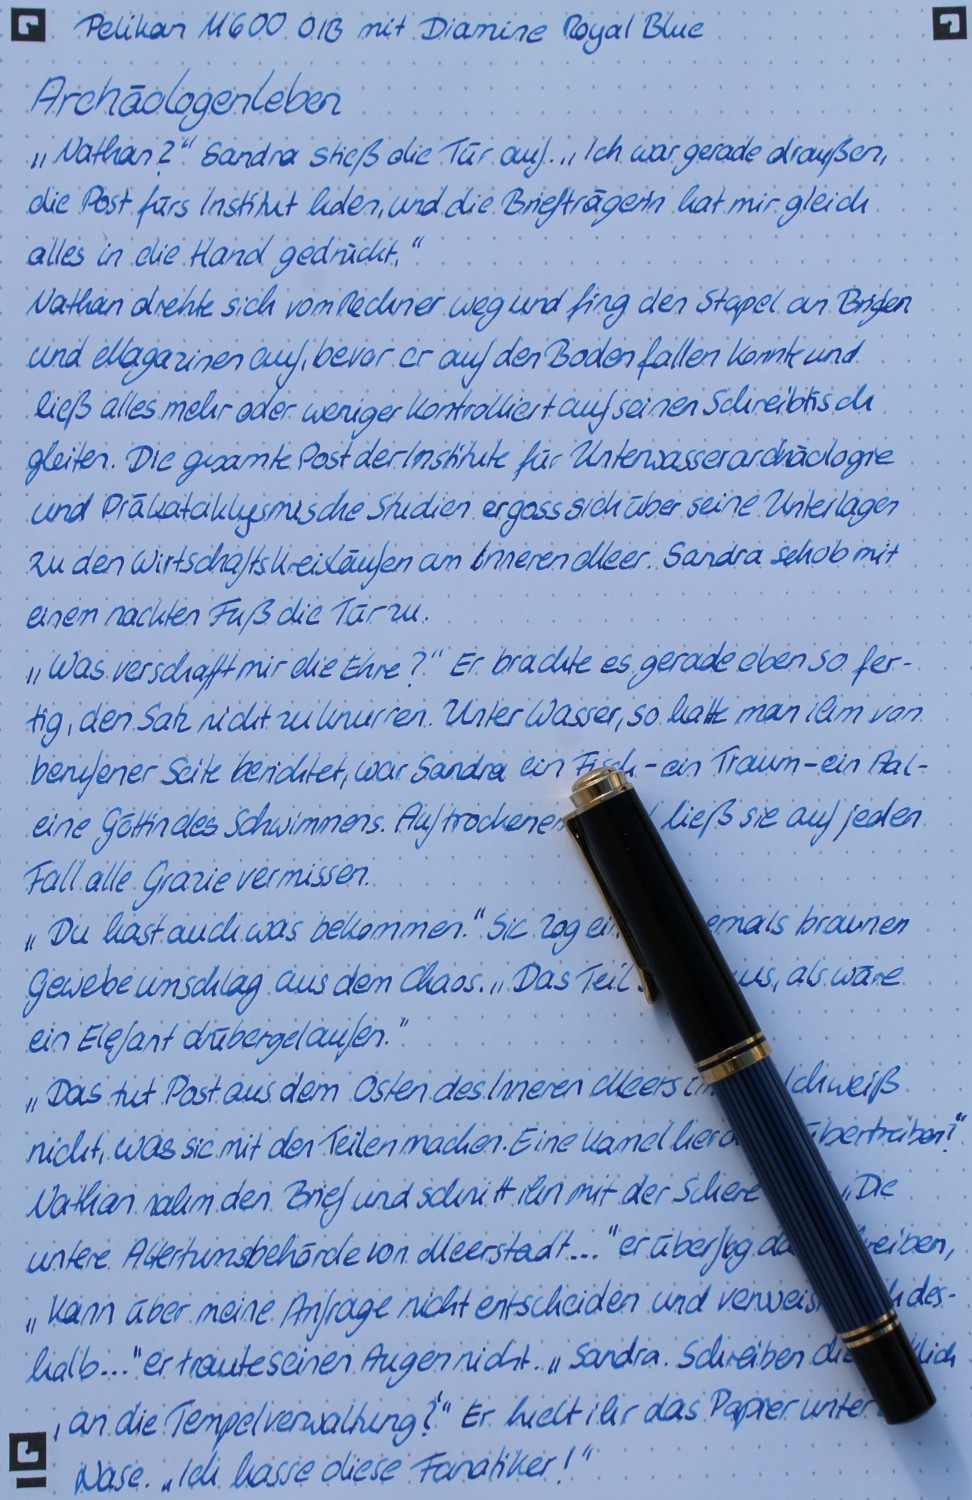 Pelikan M600 OIB mit Diamine Royal Blue
Archäologenleben
„Nathan?“ Sandra stieß die Tür auf. „Ich war gerade draußen,
die Post fürs Institut holen, und die Briefträgerin hat mir gleich
alles in die Hand gedrückt.“
Nathan drehte sich vom Rechner weg und fing den Stapel an Briefen
und Magazinen auf, bevor er auf den Boden fallen konnte und
ließ alles mehr oder weniger kontrolliert auf seinen Schreibtisch
gleiten. Die gesamte Post der Institute für Unterwasserarchäologie
und Präkataklysmische Studien ergoss sich über seine Unterlagen
zu den Wirtschaftskreisläufen am Inneren Meer. Sandra schob mit
einem nackten Fuß die Tür zu.
„Was verschafft mir die Ehre?“ Er brachte es gerade eben so fer-
tig, den Satz nicht zu knurren. Unter Wasser, so hatte man ihm von
berufener Seite berichtet, war Sandra ein Fisch - ein Traum - ein Aal -
eine Göttin des Schwimmens. Auf trockenem ließ sie auf jeden
Fall alle Grazie vermissen.
„Du hast auch was bekommen.“ Sie zog braunen
Gewebeumschlag aus dem Chaos. „Das Teil als wäre
ein Elefant drübergelaufen.“
„Das tut Post aus dem Osten des Inneren Meers Ich weiß
nicht, was sie mit den Teilen machen. Eine Kamelherde übertreiben?“
Nathan nahm den Brief und schnitt ihn mit der Schere „Die
untere Altertumsbehörde von Meerstadt...“ er überflog
„kann über meine Anfrage nicht entscheiden und des-
halb...“ er traute seinen Augen nicht. „Sandra. Schreiben die
‚an die Tempelverwaltung?‘“ Er hielt ihr das Papier unter
Nase. „Ich hasse diese Fanatiker!“